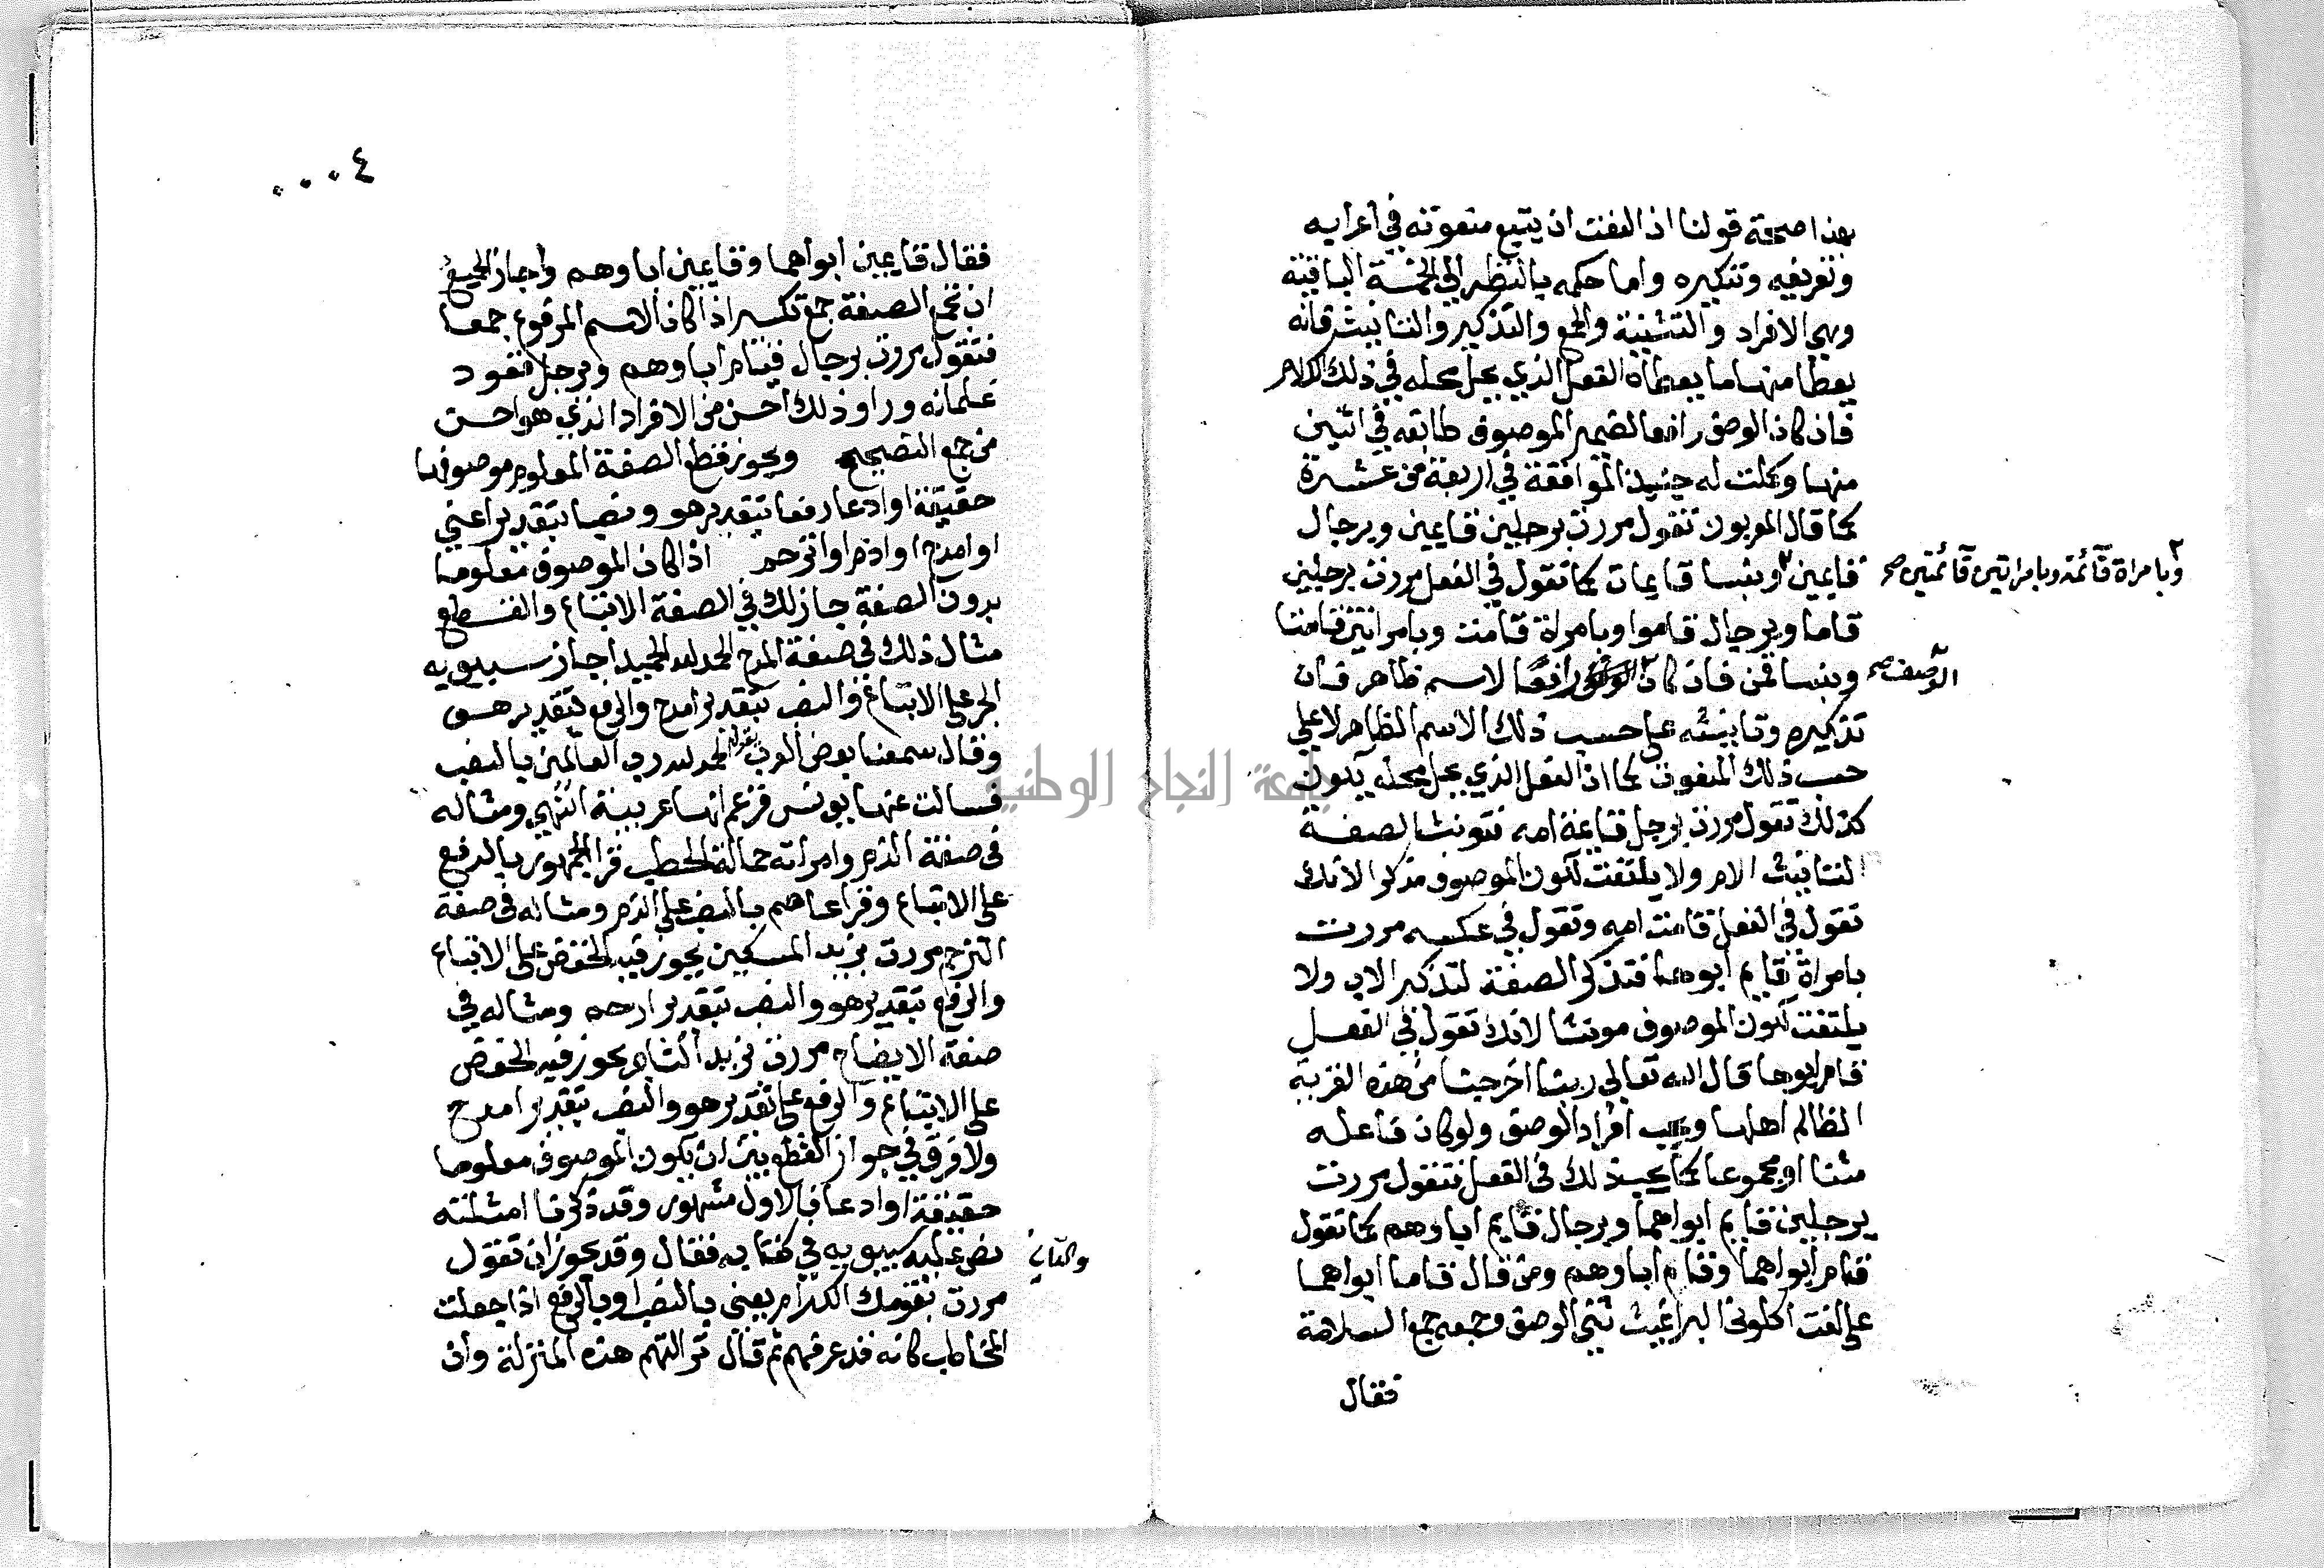 بهذا صحة قولنا ان النعت ان يتبع منعوته في اعرابه
وتعريفه وتنكيره واما حكمه بالنظر الي الخمسة الباقية
وهي الافراد والتثنية والجمع والتذكير والتانيث فانه
يعطا منها ما يعطاه الفعل الذي يحل محله في ذلك الكلام
فان كان الوصف رافعا لضمير الموصوف طابقه في اثنين
منها وكملت له حينيذ الموافقة في اربعة من عشرة
كما قال المعربون تقول مررت برجلين قايمين وبرجال
قايمين وبنسا قايمات كما تقول في الفعل مررت برجلين
وبامراة قائمة وبامراتين قائمتين صح
قاما وبرجال قاموا وبامراة قامت وبامراتين قامتا
وبنسا قمن فان كان رافعا لاسم ظاهر فان
الوصف صح
تذكيره وتانيثه على حسب ذلك الاسم الظاهر لا علي
حسب ذلك المنعوت كما ان الفعل الذي يحل محله يكون
كذلك تقول مررت برجل قايمة امه فتونث الصفة
لتانيث الام ولا يلتفت لكون الموصوف مذكرا لانك
تقول في الفعل قامت امه وتقول في عكسه مررت
بامراة قايم ابوها فتذكر الصفة لتذكير الاب ولا
يلتفت لكون الموصوف مونثا لانك تقول في الفعل
قام ابوها قال الله تعالي ربنا اخرجنا من هذه القرية
الظالم اهلها ويجب افراد الوصف ولو كان فاعله
مثنا او مجموعا كما يجب ذلك في الفعل فتقول مررت
برجلين قايم ابواهما وبرجال قايم اباوهم كما تقول
قام ابواهما وقام اباوهم ومن قال قاما ابواهما
على لغت اكلوني البراغيث ثني الوصف وجمعه جمع السلامة
فقال
٠٠٠٤
فقال قايمين ابواهما وقايمين اباوهم واجاز الجميع
ان تجمع الصفة جمع تكسير اذا كان الاسم المرفوع جمعا
فتقول مررت برجال قيام اباوهم وبرجل قعود
غلمانه وراو ذلك احسن من الافراد الذي هو احسن
من جمع التصحيح ويجوز قطع الصفة المعلوم موصوفها
حقيقة او ادعا رفعا بتقدير هو ونصبا بتقدير اعني
او امدح او اذم او اترحم اذا كان الموصوف معلوما
بدون الصفة جاز لك في الصفة الاتباع والقطع
مثال ذلك في صفة المدح الحمد لله الحميد اجاز سيبويه
الجر على الاتباع والنصب بتقدير امدح والرفع بتقدير هو
وقال سمعنا بعض العرب يقول الحمد لله رب العالمين بالنصب
فسالت عنها يونس فزعم انها عربية انتهى ومثاله
في صفة الذم وامراته حمالة الحطب قرا الجمهور بالرفع
على الاتباع وقرا عاصم بالنصب على الذم ومثاله في صفة
الترحم مررت بزيد المسكين يجوز فيه الخفض على الاتباع
والرفع بتقدير هو والنصب بتقدير ارحم ومثاله في
صفة الايضاح مررت بزيد التاجر يجوز فيه الخفض
على الاتباع والرفع على تقدير هو والنصب بتقدير امدح
ولا فرق في جواز القطع بين ان يكون الموصوف معلوما
حقيقة او ادعا فالاول مشهور وقد ذكرنا امثلته
نص عليه سيبويه في كتابه فقال وقد يجوز ان تقول
والثاني
مررت بقومك الكرام يعني بالنصب او بالرفع اذا جعلت
المخاطب كانه قد عرفهم ثم قال نزلتهم هذه المنزلة وان
جامعة النجاح الوطنية